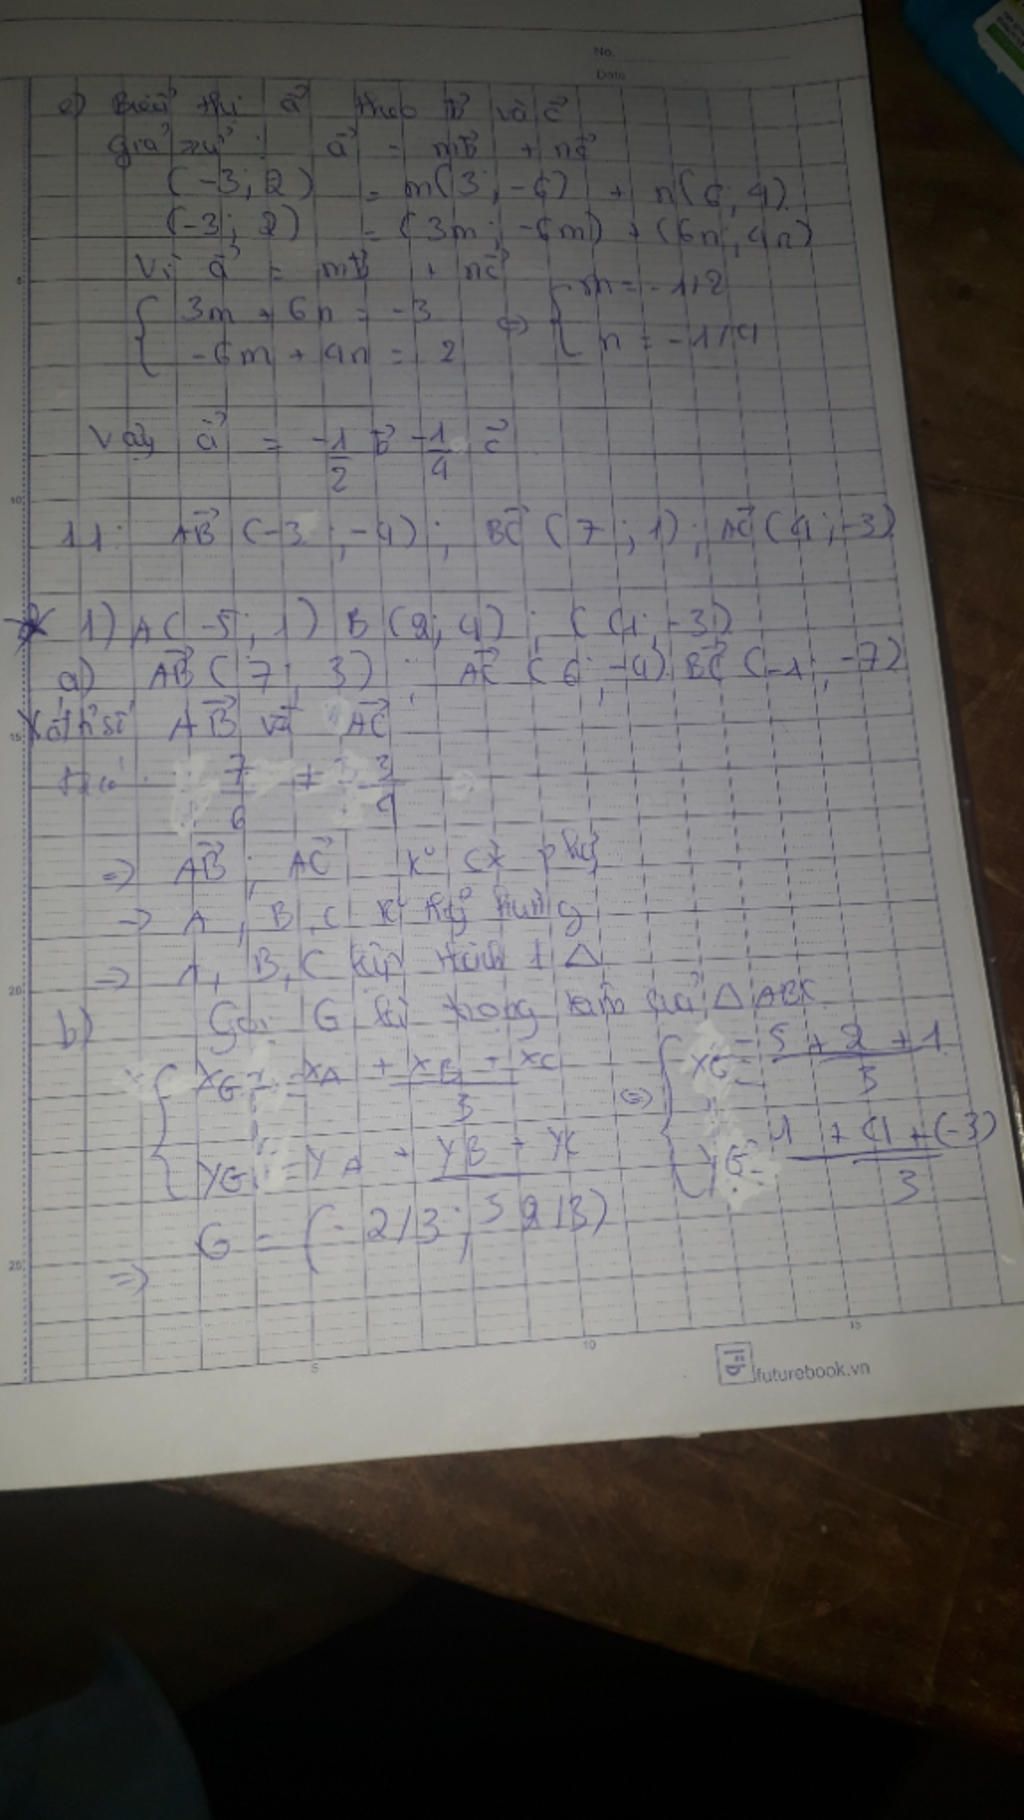 No.
Date
e) Biểu thị a⃗ theo b⃗ và c⃗
giả sử: a⃗ = mb⃗ + nc⃗
(-3; 2) = m(3; -6) + n(6; 4)
(-3; 2) = (3m; -6m) + (6n; 4n)
Vì a⃗ = mb⃗ + nc⃗
{ 3m + 6n = -3
-6m + 4n = 2
⇔ { m = -1/2
n = -1/4
Vậy a⃗ = -1/2 b⃗ -1/4 c⃗
11: AB⃗ (-3; -4); BC⃗ (7; 1); AC⃗ (4; -3)
1) A(-5; 1) B(2; 4); C(1; -3)
a) AB⃗ (7; 3); AC⃗ (6; -4) BC⃗ (-1; -7)
AB⃗ và AC⃗
7/6 ≠ 3/4
=> AB⃗; AC⃗ K°
-> A, B, C K°
=> A, B, C lập thành 1 Δ
b) Gọi G là trọng tâm của Δ ABC
{ xG = xA + xB + xC / 3
yG = yA + yB + yC
⇔ { xG = -5 + 2 + 1 / 3
yG = 1 + 4 + (-3) / 3
=> G = (-2/3; 2/3)
5
10
15
20
25
futurebook.vn